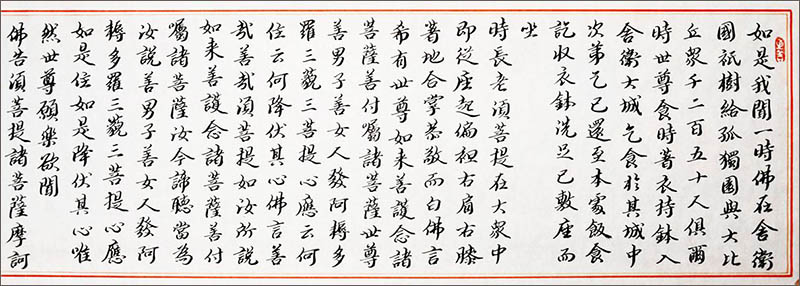 如是我聞一時佛在舍衛
國祇樹給孤獨園與大比
丘眾千二百五十人俱爾
時世尊食時著衣持鉢入
舍衛大城乞食於其城中
次第乞已還至本處飯食
訖收衣鉢洗足已敷座而
坐
時長老須菩提在大眾中
即從座起偏袒右肩右膝
著地合掌恭敬而白佛言
希有世尊如來善護念諸
菩薩善付囑諸菩薩世尊
善男子善女人發阿耨多
羅三藐三菩提心應云何
住云何降伏其心佛言善
哉善哉須菩提如汝所說
如來善護念諸菩薩善付
囑諸菩薩汝今諦聽當為
汝說善男子善女人發阿
耨多羅三藐三菩提心應
如是住如是降伏其心唯
然世尊願樂欲聞
佛告須菩提諸菩薩摩訶